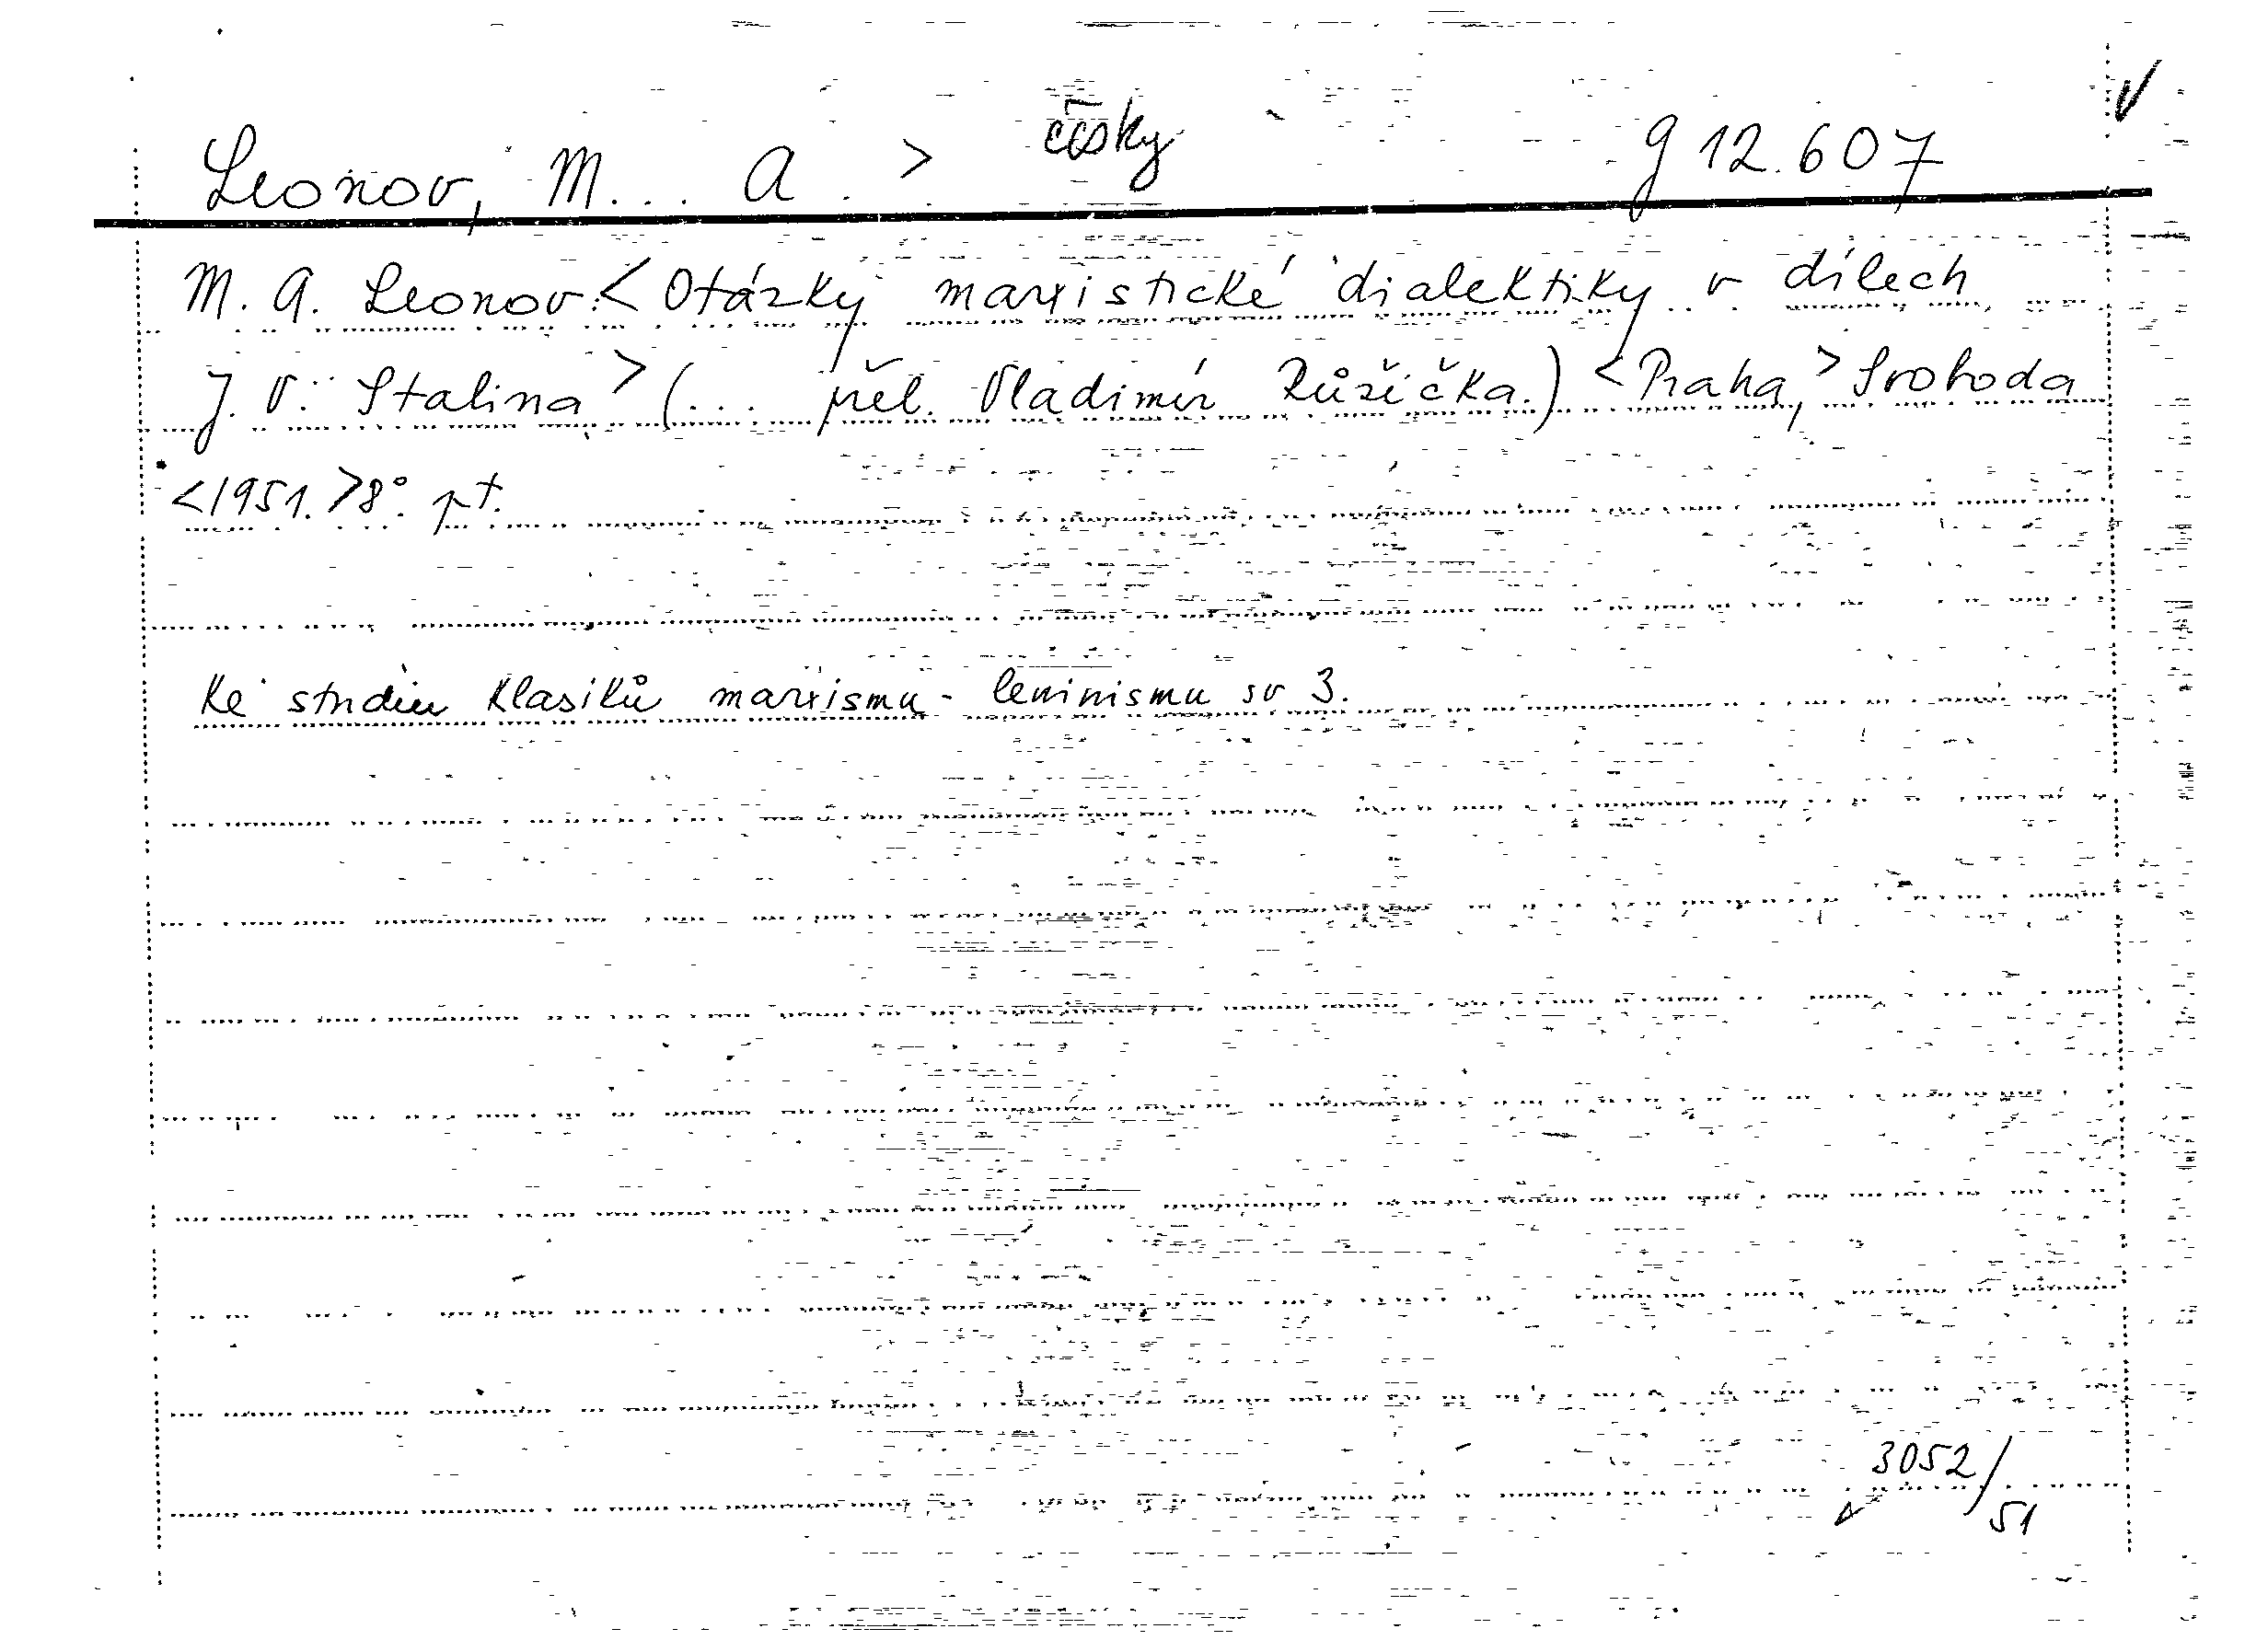 Leonov, M... A. > česky g 12.607
M. A. Leonov: < Otázky marxistické dialektiky v dílech
J. V. Stalina > (... přel. Vladimír Růžička.) < Praha, > Svoboda
<1951. > 8°. pt.
Ke studiu klasiků marxismu - leninismu sv 3.
3052/51